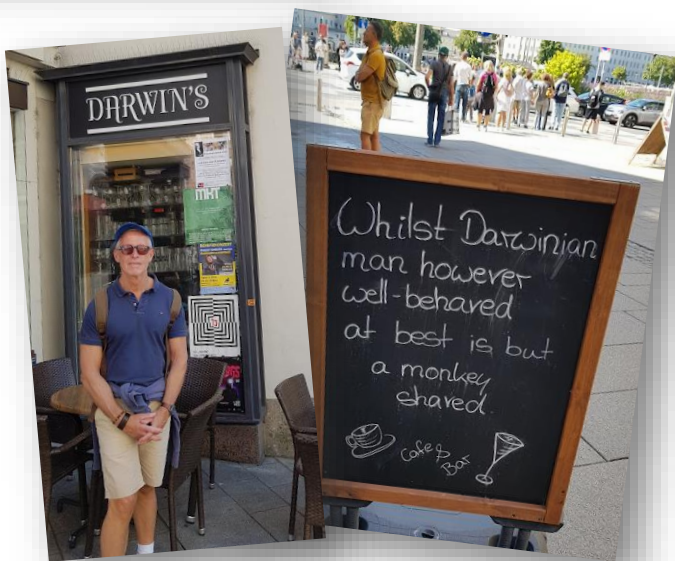 DARWIN'S
MKT
Whilst Darwinian
man however
well-behaved
at best is but
a monkey
shaved.
Cafe &
Bar